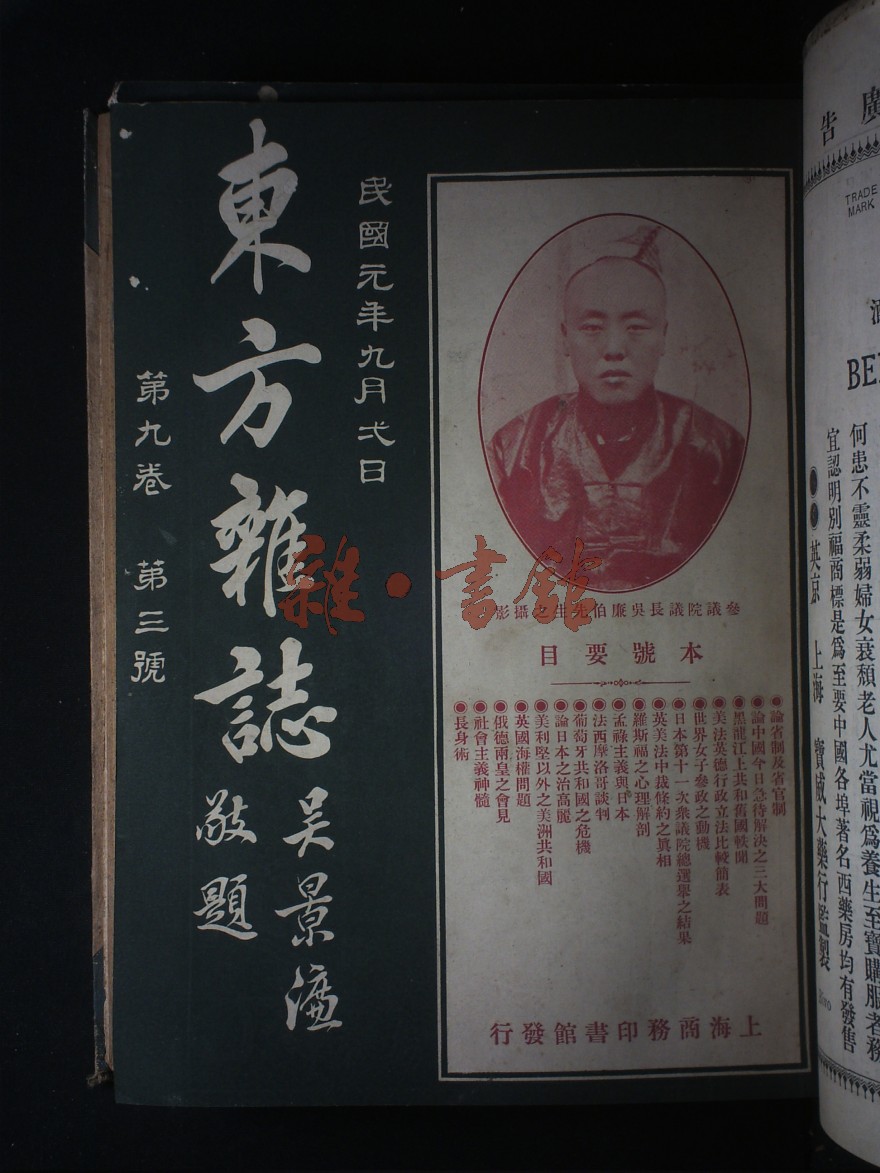 民國元年九月弍日
東方雜誌
吴景濂
敬題
第九卷 第三號
雜·書館
參議院議長吳廉伯先生之攝影
本號要目
論省制及省官制
論中國今日急待解決之三大問題
黑龍江上共和舊國軼聞
美法英德行政立法比較簡表
世界女子參政之動機
日本第十一次衆議院總選舉之結果
英美法中裁條約之眞相
羅斯福之心理解剖
孟祿主義與日本
法西摩洛哥談判
葡萄牙共和國之危機
論日本之治高麗
美利堅以外之美洲共和國
英國海權問題
俄德兩皇之會見
社會主義神髓
長身術
上海商務印書館發行
廣告
TRADE
MARK
BE
何患不靈柔弱婦女衰頹老人尤當視爲養生至寶購服者務
宜認明別福商標是爲至要中國各埠著名西藥房均有發售
英京 上海 寶威大藥行監製